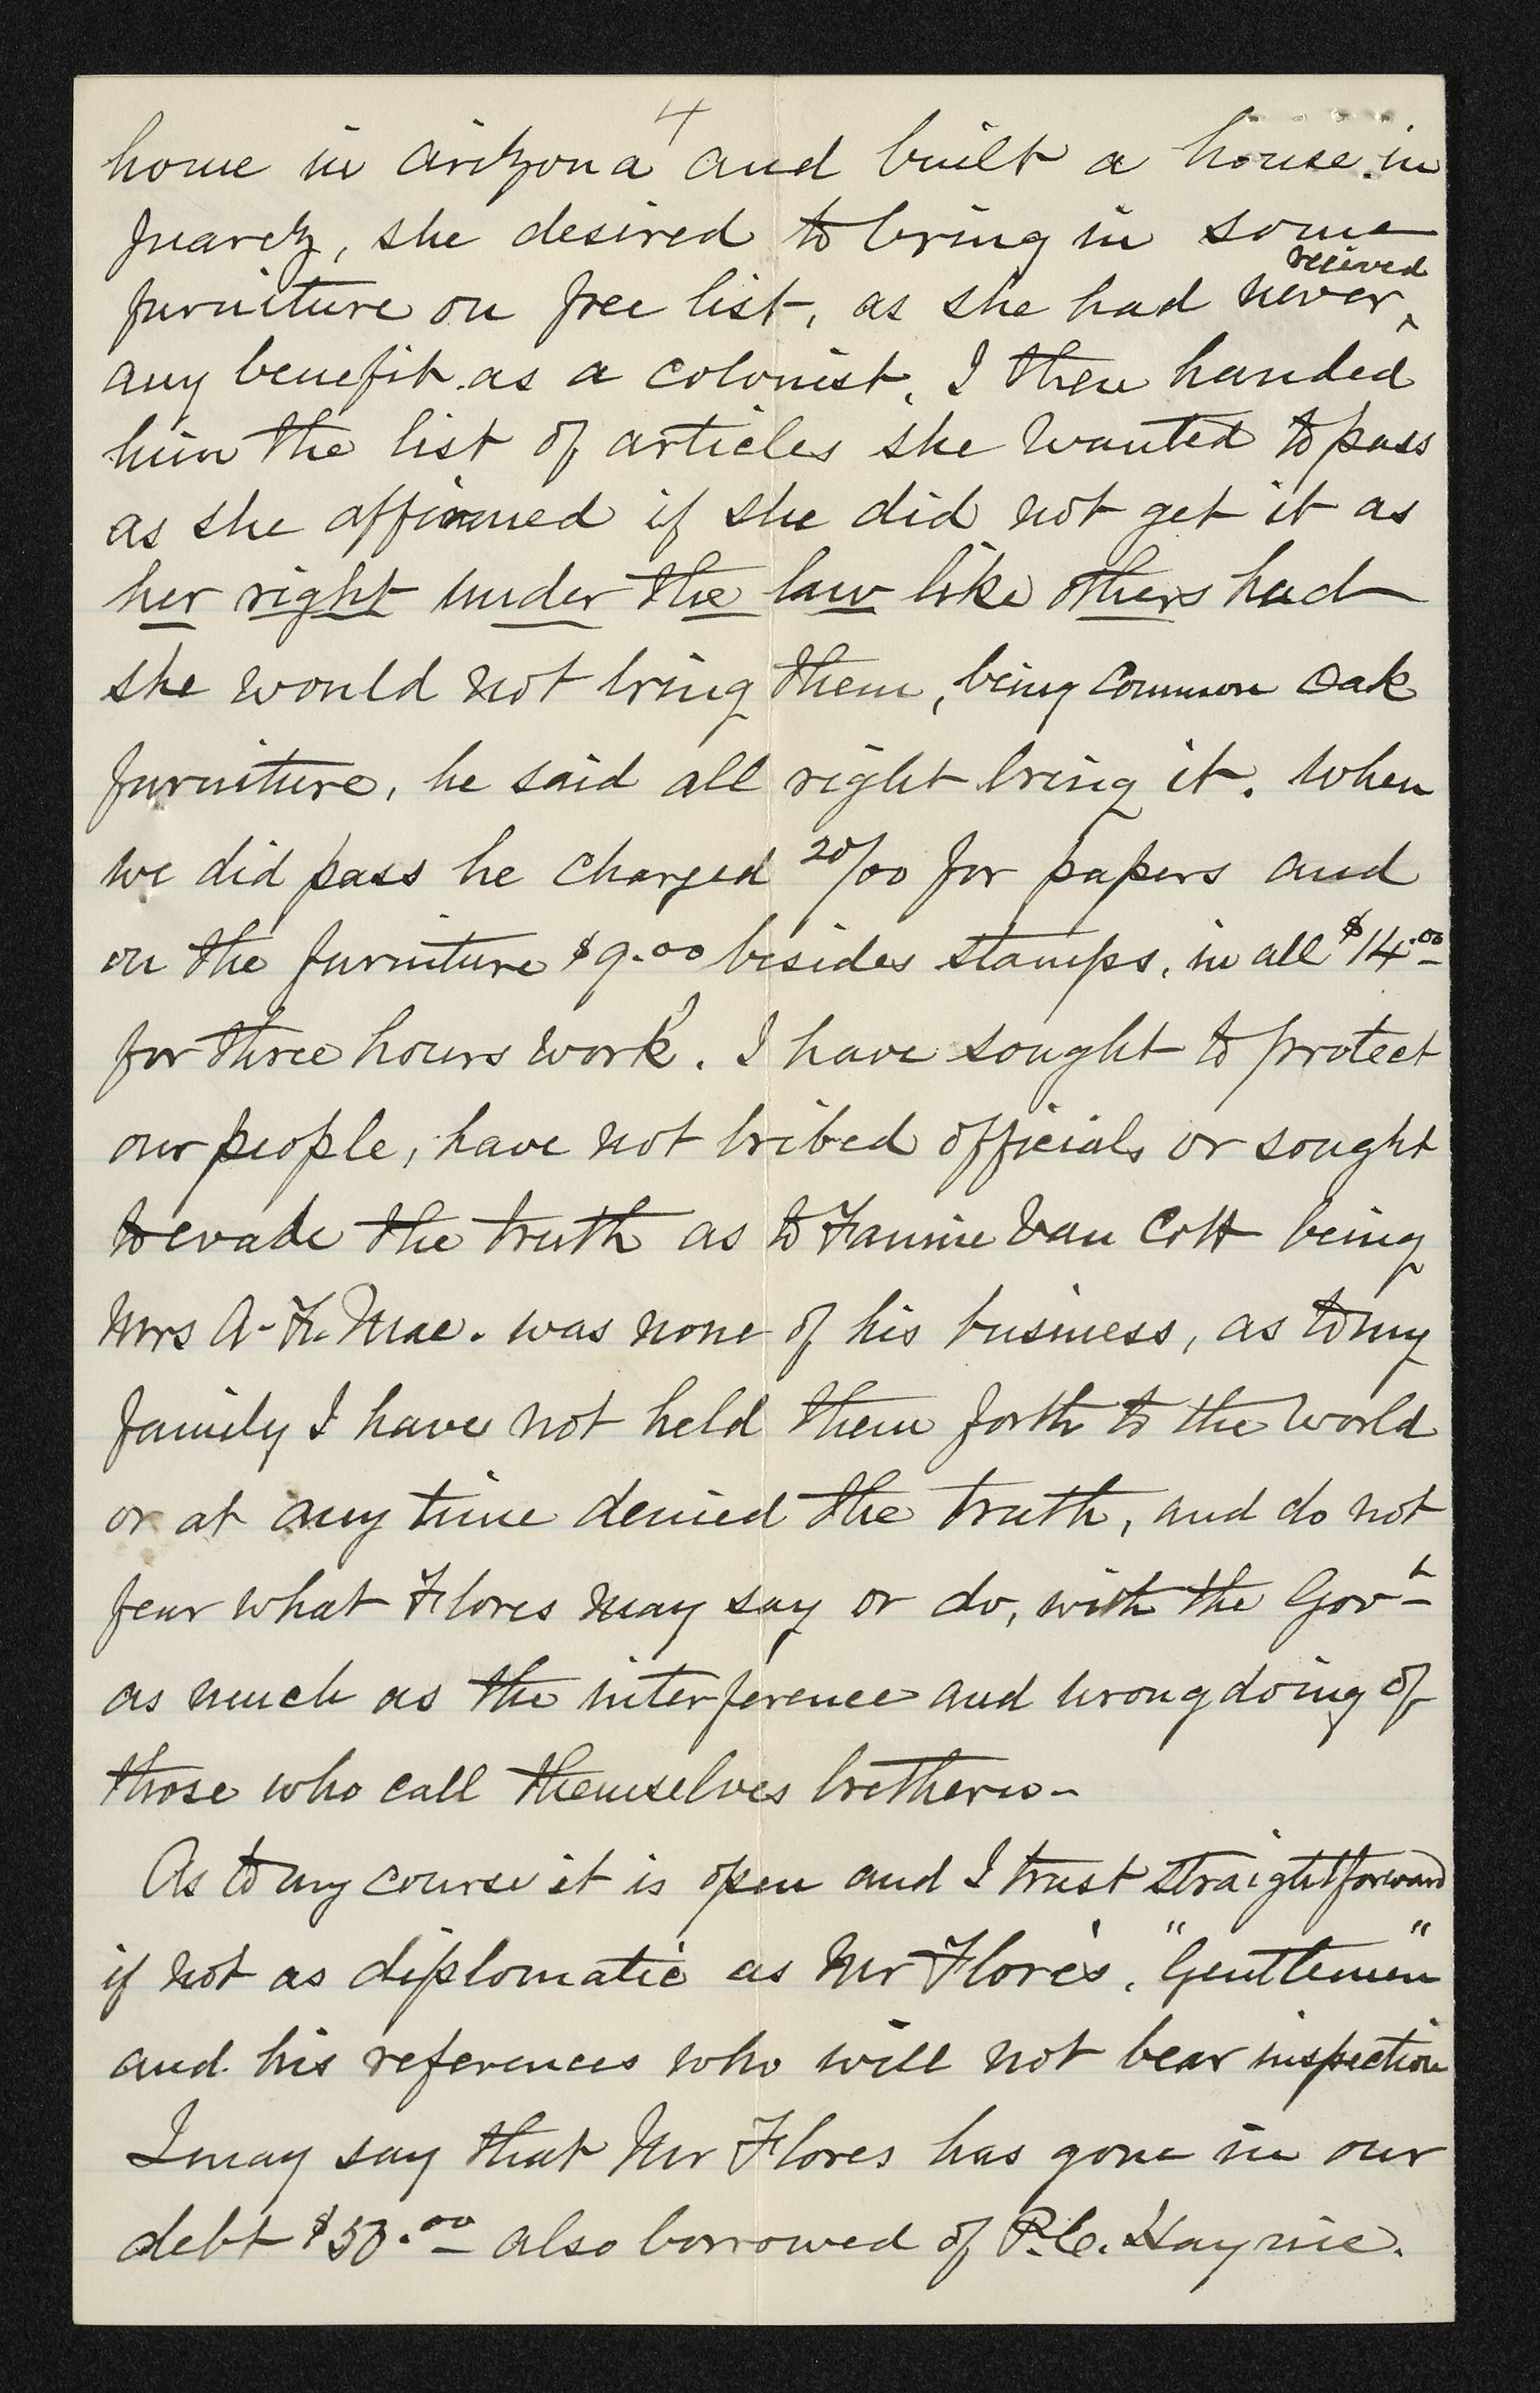 4
home in Arizona and built a house in
Juarez, she desired to bring in some
furniture on free list, as she had never ^received
any benefit as a colonist, I then handed
him the list of articles she wanted to pass
as she affirmed if she did not get it as
her right under the law like others had
she would not bring them, being common oak
furniture, he said all right bring it. When
we did pass he charged 20/00 for papers and
on the furniture $9.00 besides stamps, in all $14.00
for three hours work. I have sought to protect
our people, have not bribed officials or sought
to evade the truth as to Fannie Van Cott being
Mrs A. F. Mac. was none of his business, as to my
family I have not held them forth to the world
or at any time denied the truth, and do not
fear what Flores may say or do, with the Govt
as much as the interference and wrongdoing of
those who call themselves bretheren-
As to my course it is open and I trust straightforward
if not as diplomatic as Mr Flore's. "Gentlemen"
and his references who will not bear inspection
I may say that Mr Flores has gone in our
debt $50.00 also borrowed of P.C. Haynie.